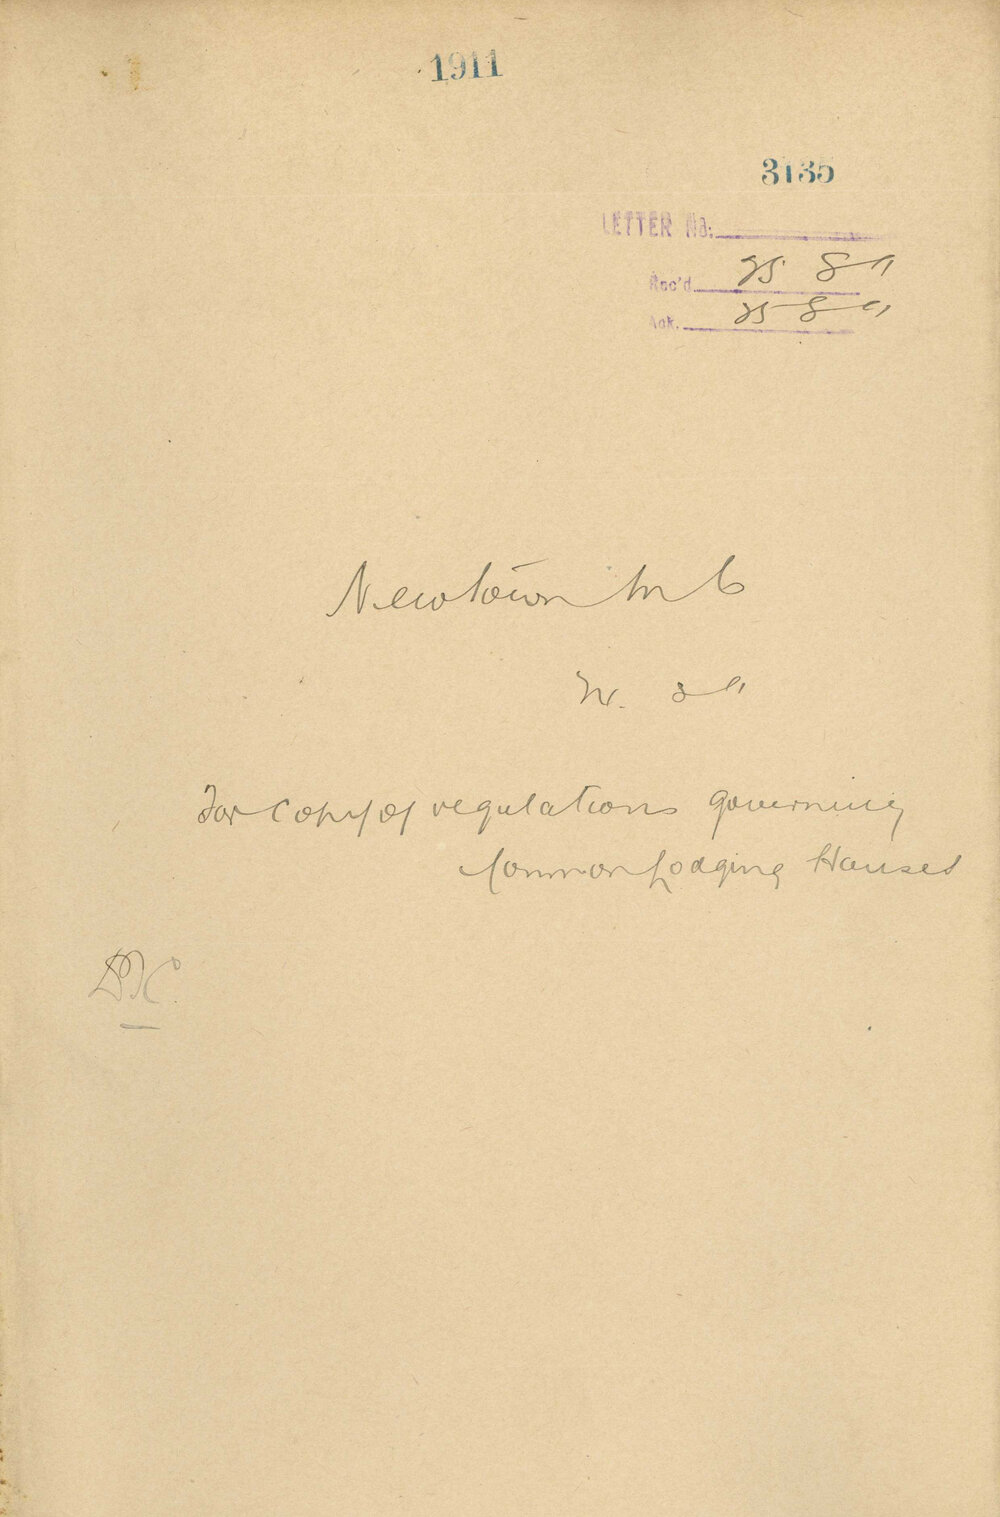 1911
3135
LETTER No.
Rec'd 25 8 11
Ack. 25 8 11
Newtown M C
8 11
For Copy of regulations governing
Common Lodging Houses